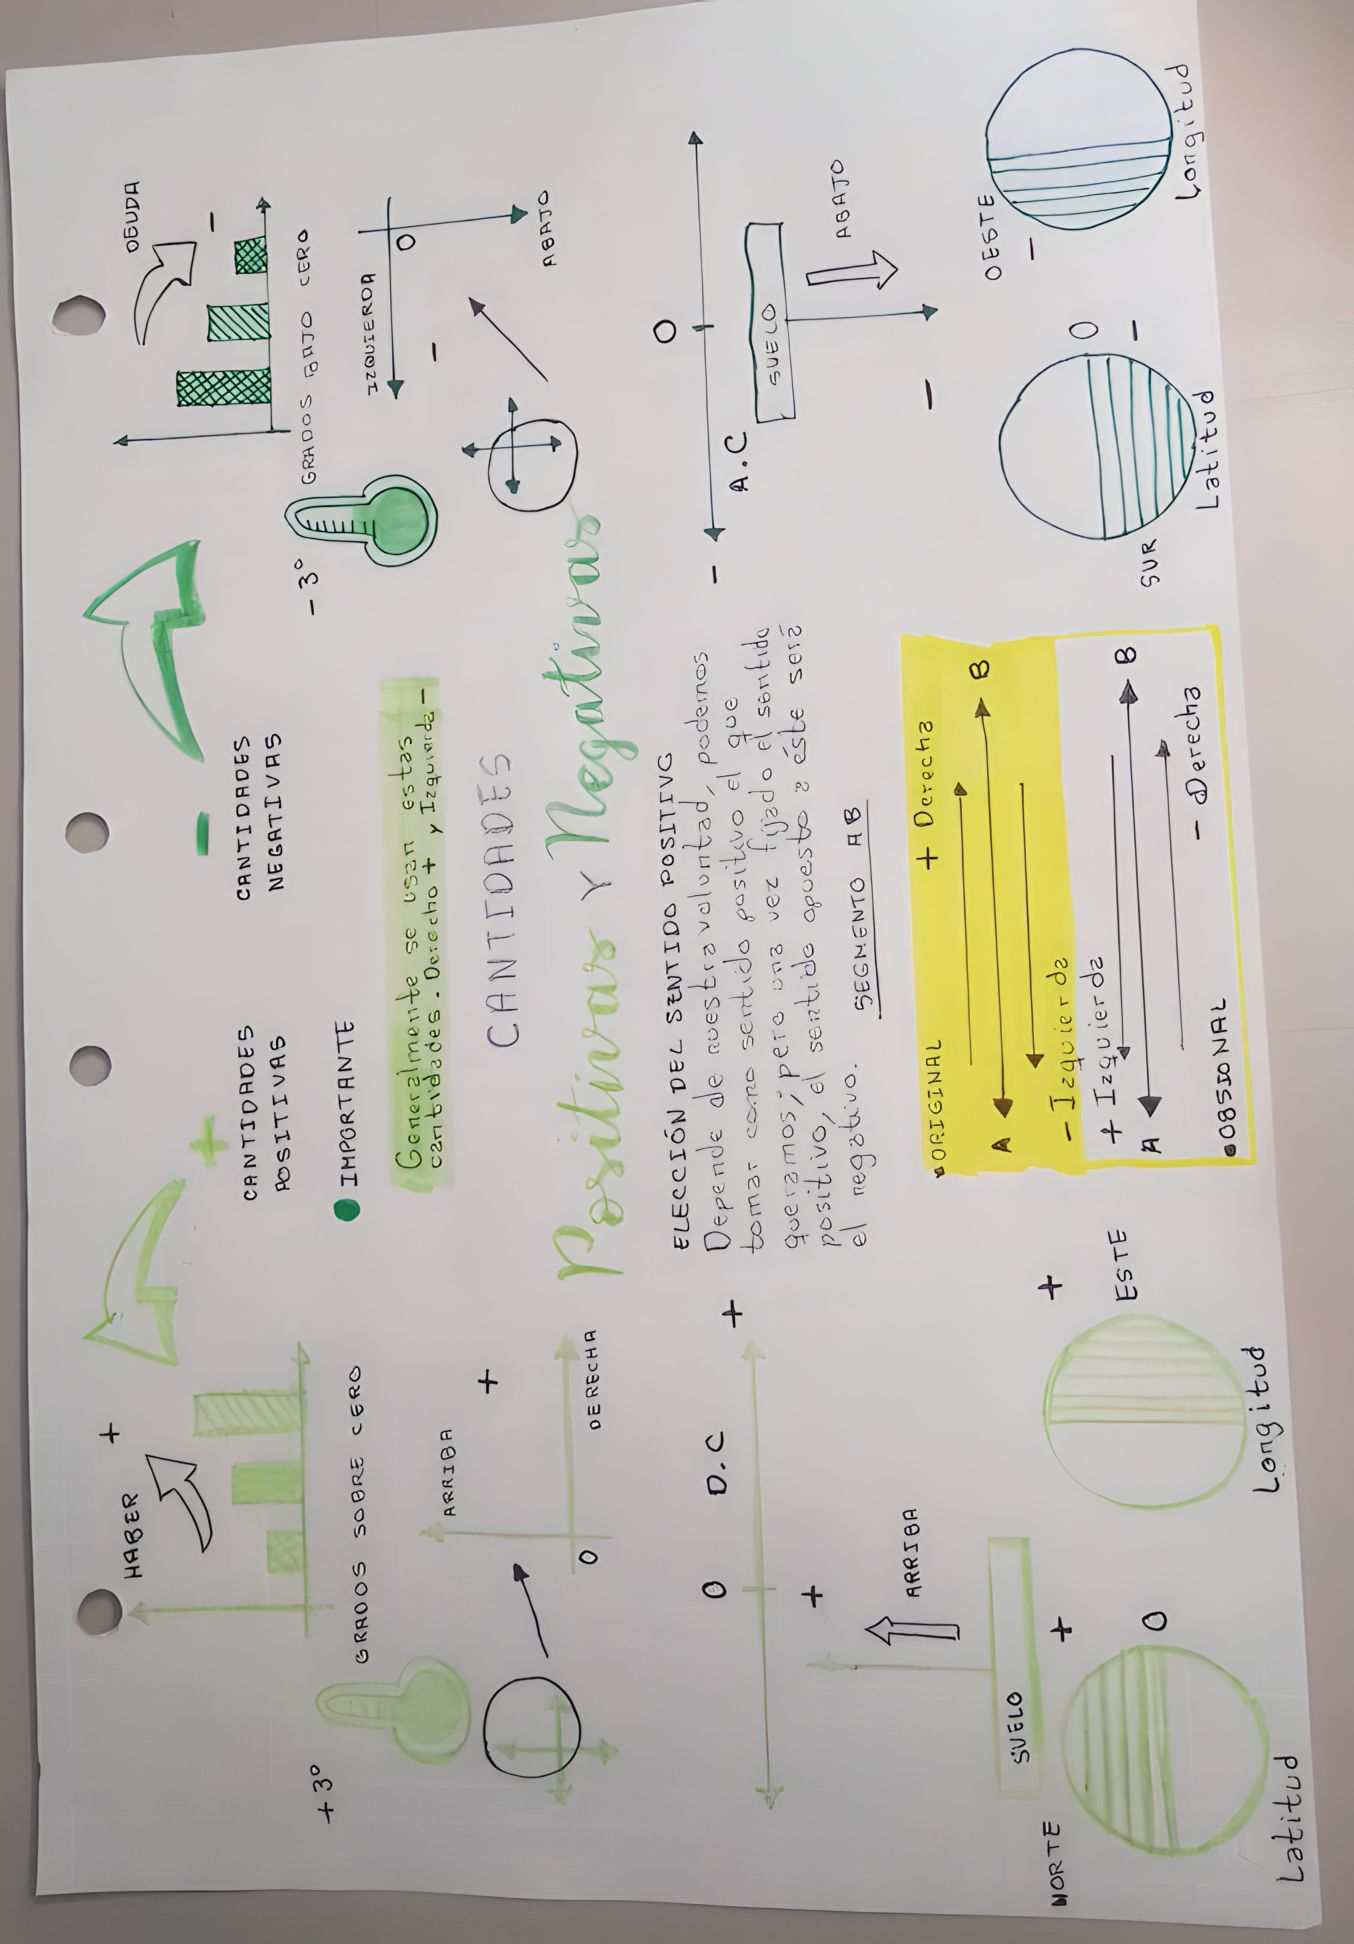 HABER
+
+3°
GRADOS SOBRE CERO
ARRIBA
+
0
DERECHA
0
D.C
+
+
ARRIBA
SUELO
NORTE
+
0
Latitud
+
ESTE
Longitud
+
CANTIDADES
POSITIVAS
-
CANTIDADES
NEGATIVAS
IMPORTANTE
Generalmente se usan estas
cantidades. Derecho + y Izquierda -
CANTIDADES
Positivas y Negativas
ELECCIÓN DEL SENTIDO POSITIVO
Depende de nuestra voluntad, podemos
tomar como sentido positivo el que
queramos; pero una vez fijado el sentido
positivo, el sentido opuesto a éste será
el negativo.
SEGMENTO AB
•ORIGINAL
+ Derecha
A
B
- Izquierda
+ Izquierda
A
B
- Derecha
•OBSIONAL
DEUDA
-
-3°
GRADOS BAJO CERO
IZQUIERDA
0
-
ABAJO
0
-
A.C
SUELO
ABAJO
-
SUR
0
-
Latitud
OESTE
-
Longitud